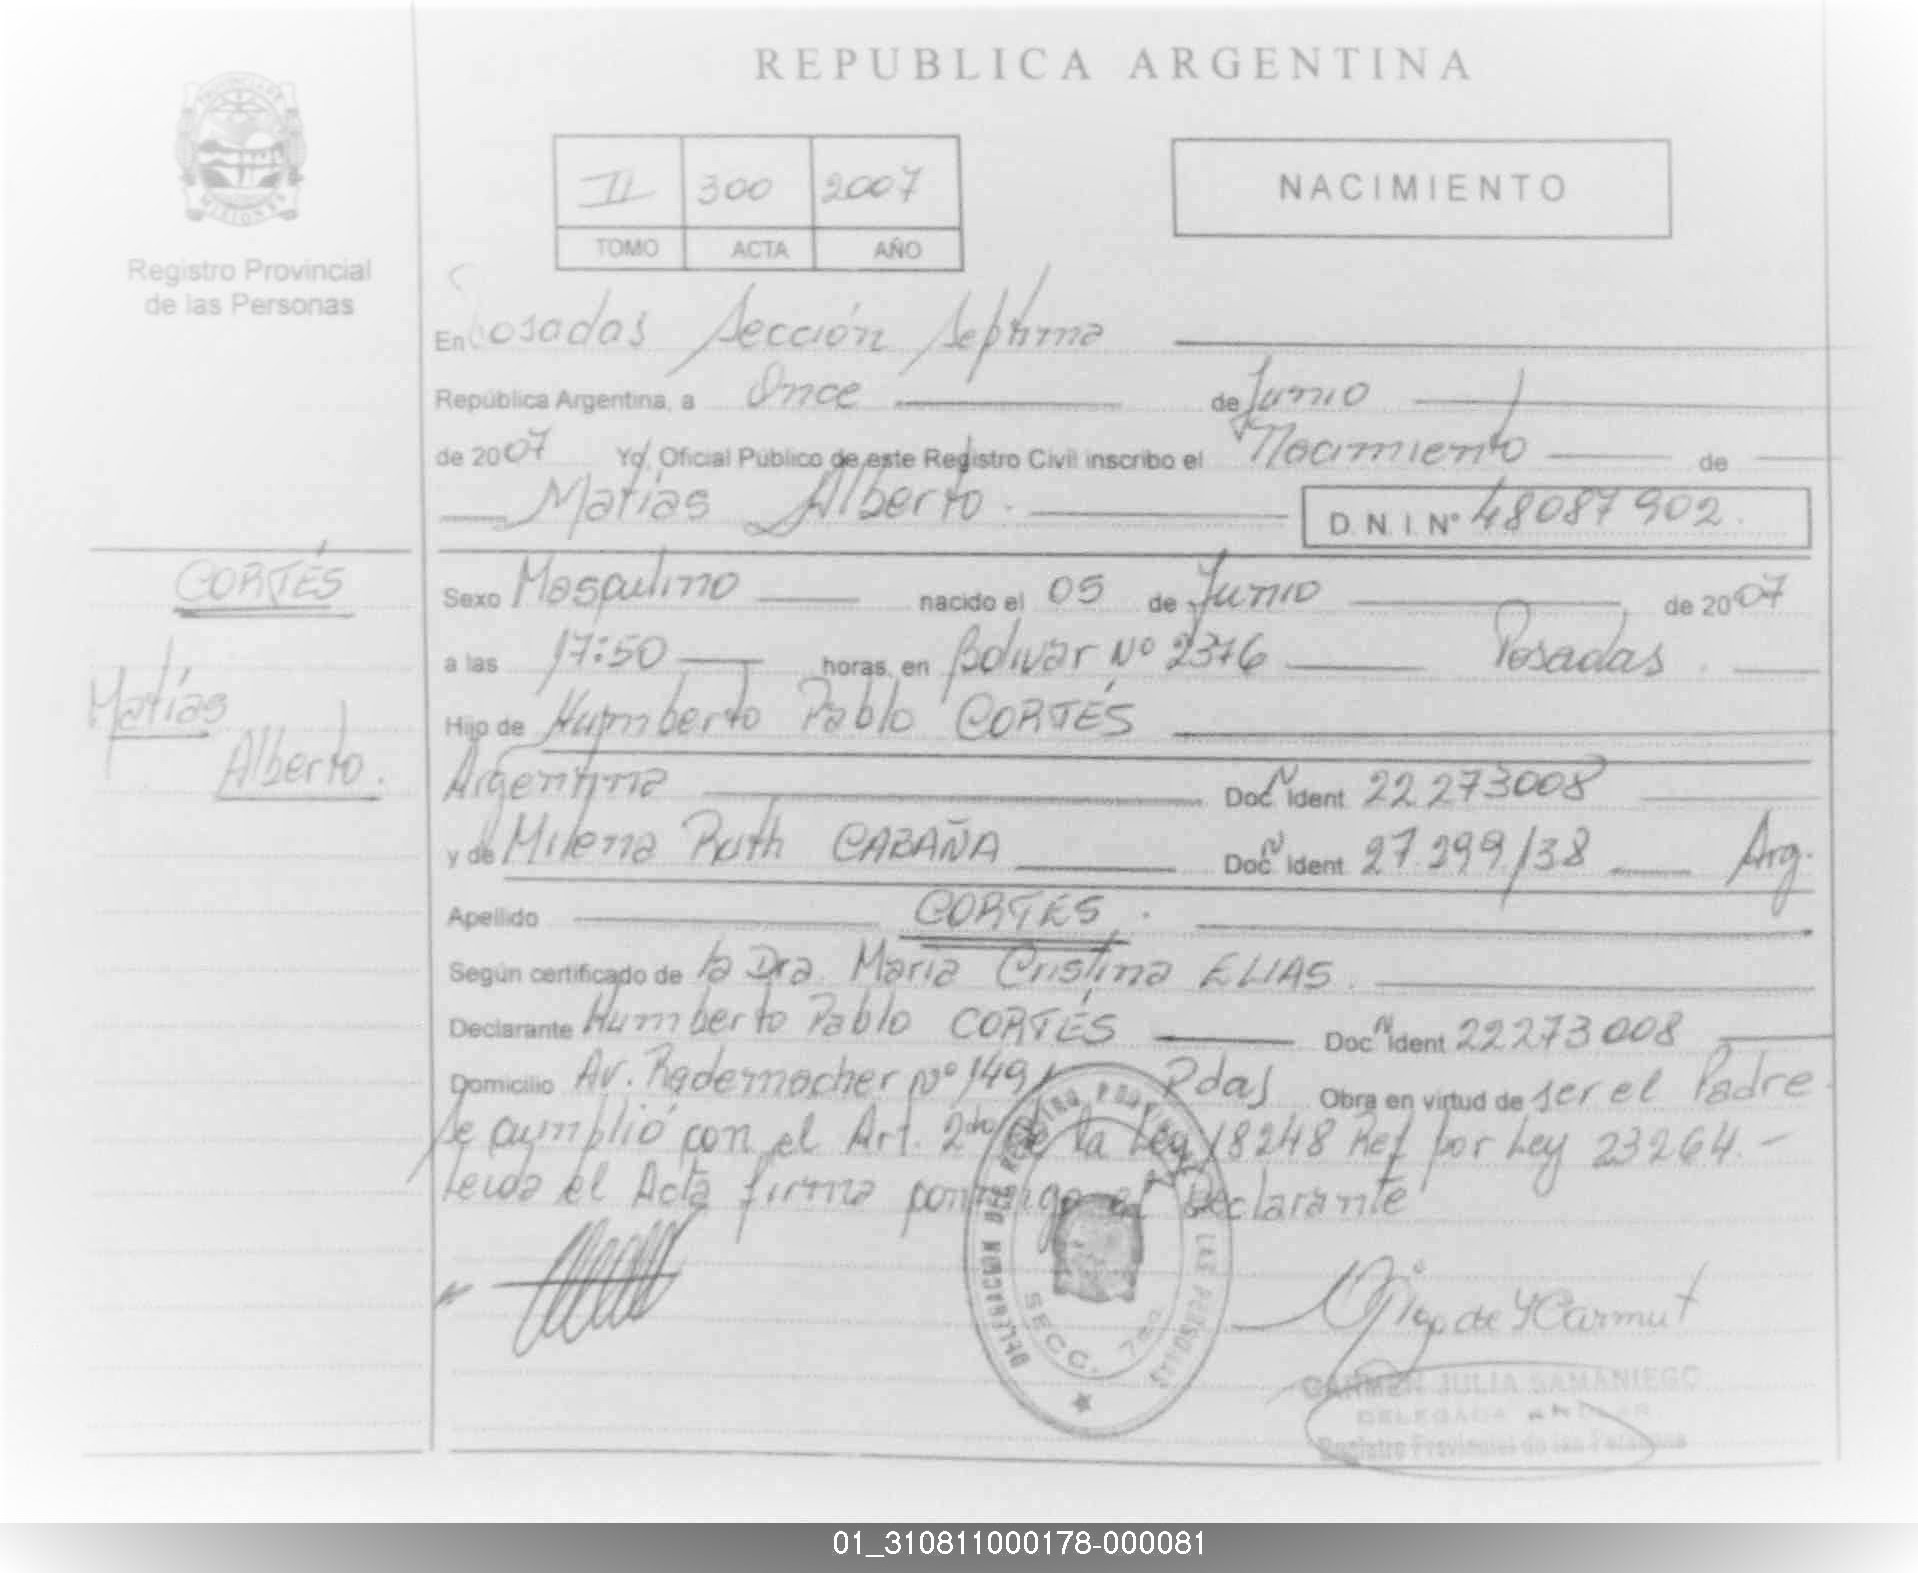 REPUBLICA ARGENTINA
II 300 2007
TOMO ACTA AÑO
NACIMIENTO
Registro Provincial
de las Personas
En Posadas Sección Septima
República Argentina, a Once de Junio
de 2007 Yo, Oficial Público de este Registro Civil inscribo el Nacimiento de
Matías Alberto. D.N.I. Nº 48087902.
CORTÉS
Matías
Alberto.
Sexo Masculino nacido el 05 de Junio de 2007
a las 17:50 horas, en Bolivar Nº 2376 Posadas.
Hijo de Humberto Pablo CORTÉS
Argentina Doc. Ident. 22.273008
y de Milena Ruth CABAÑA Doc. Ident. 27.299138 Arg.
Apellido CORTÉS.
Según certificado de la Dra. María Cristina ELIAS.
Declarante Humberto Pablo CORTÉS Doc. Ident. 22273008
Domicilio Av. Rademacher Nº 149 Pdas Obra en virtud de ser el Padre.
Se cumplió con el Art. 2do de la Ley 18248 Ref por Ley 23264.-
Leida el Acta firma conmigo el Declarante
DELEGACION DEL REGISTRO PROVINCIAL DE LAS PERSONAS
SECC. 7ma
CARMEN JULIA SAMANIEGO
DELEGADA
Registro Provincial de las Personas
01_310811000178-000081